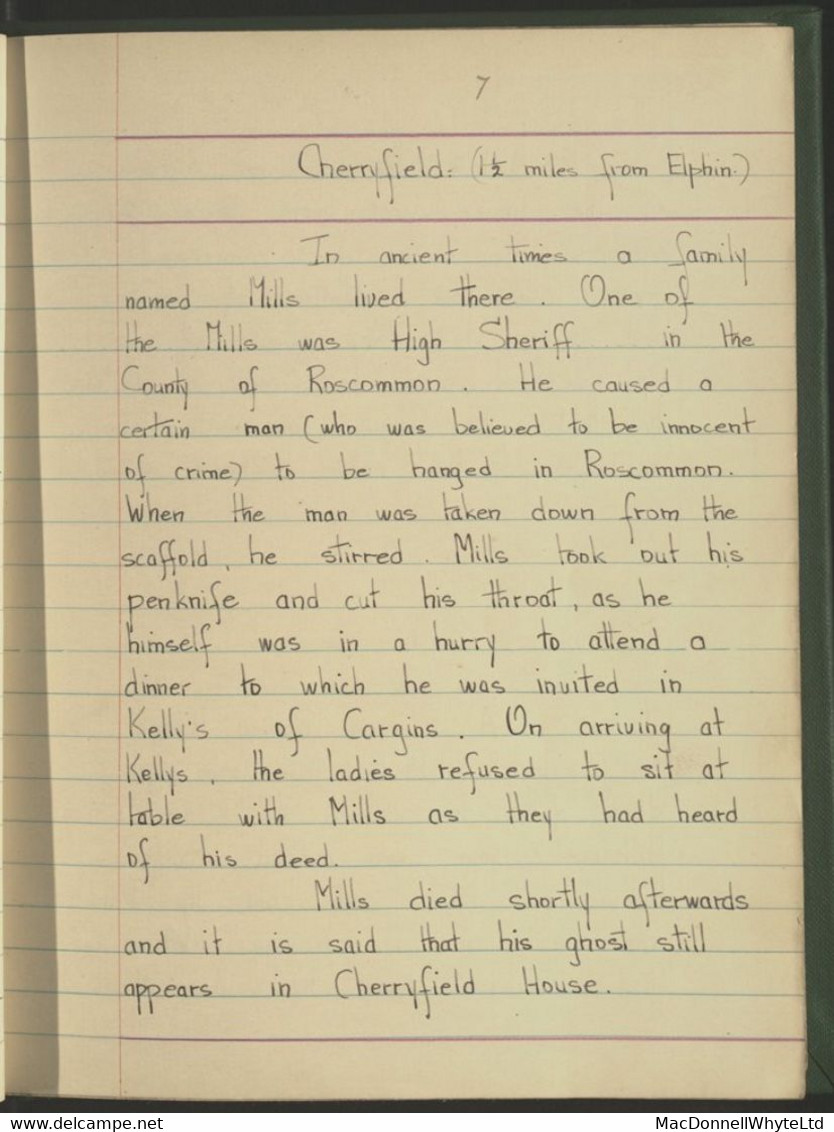 7
Cherryfield: (1½ miles from Elphin.)
In ancient times a family
named Mills lived there. One of
the Mills was High Sheriff in the
County of Roscommon. He caused a
certain man (who was believed to be innocent
of crime) to be hanged in Roscommon.
When the man was taken down from the
scaffold, he stirred. Mills took out his
penknife and cut his throat, as he
himself was in a hurry to attend a
dinner to which he was invited in
Kelly's of Cargins. On arriving at
Kellys, the ladies refused to sit at
table with Mills as they had heard
of his deed.
Mills died shortly afterwards
and it is said that his ghost still
appears in Cherryfield House.
www.delcampe.net
MacDonnellWhyteLtd